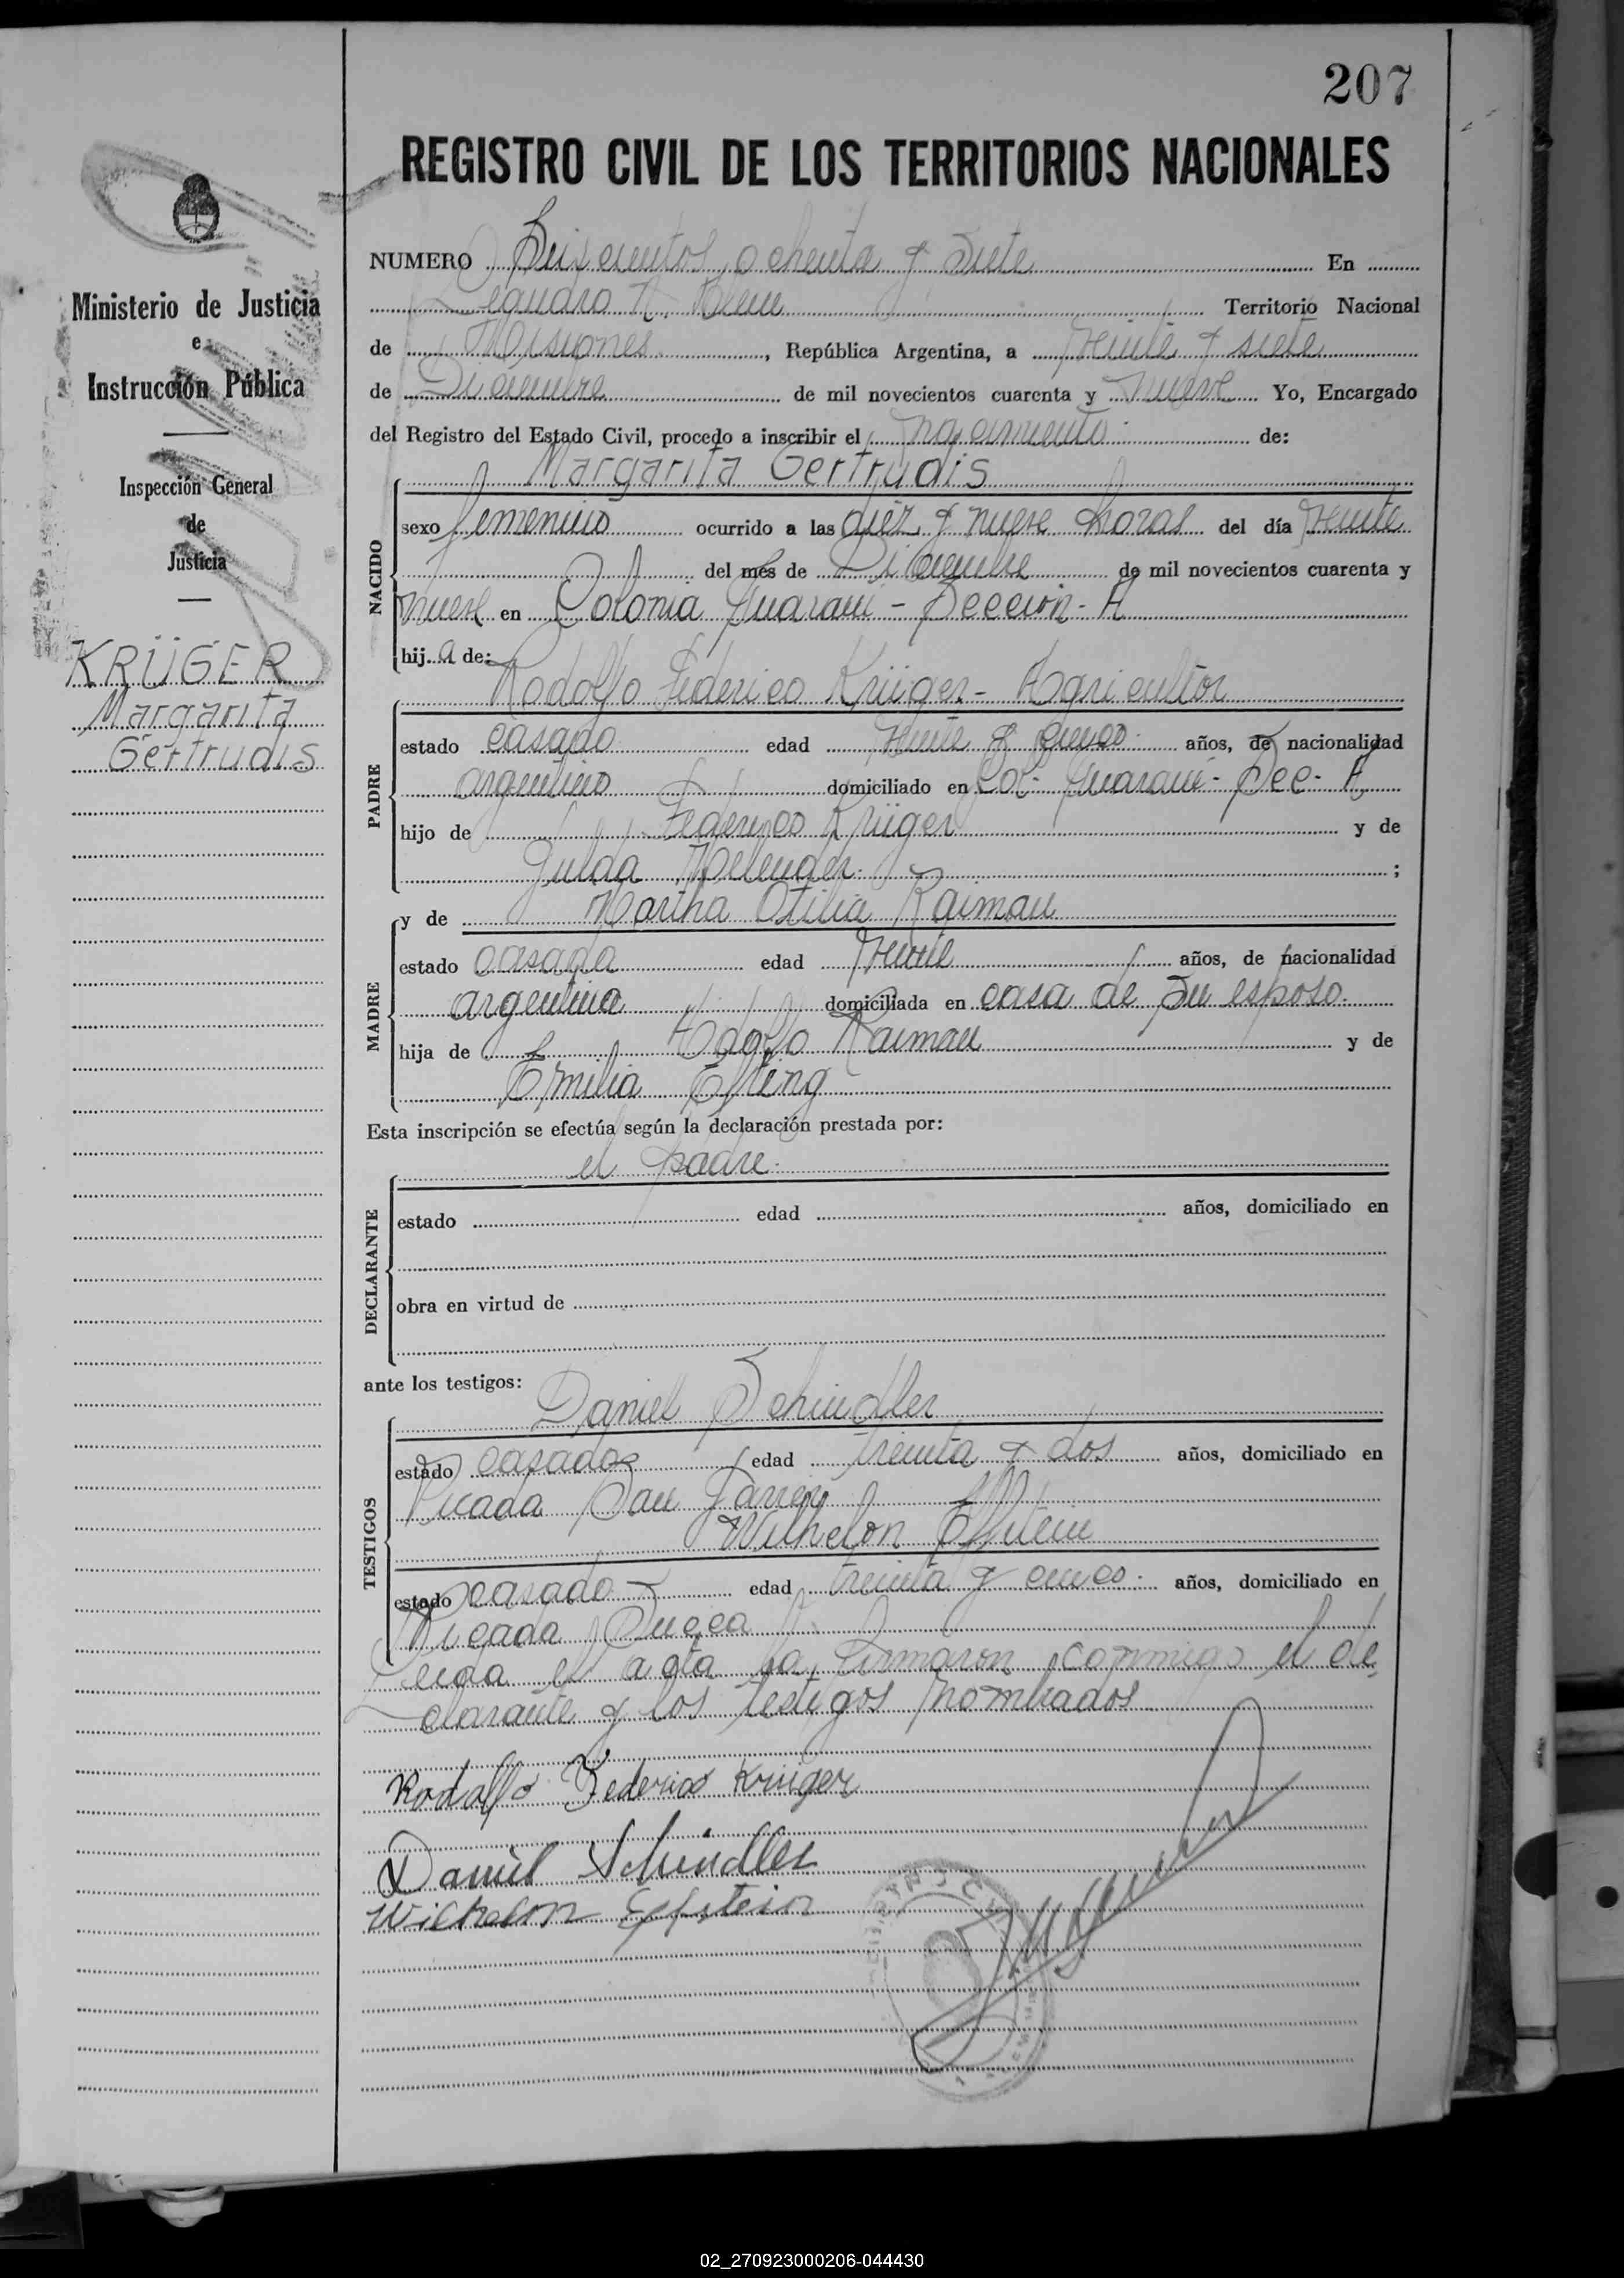 207
REGISTRO CIVIL DE LOS TERRITORIOS NACIONALES
Ministerio de Justicia
e
Instrucción Pública
Inspección General
de
Justicia
KRÜGER
Margarita
Gertrudis
NUMERO Seiscientos ochenta y siete En
Leandro N. Alem Territorio Nacional
de Misiones, República Argentina, a veinte y siete
de Diciembre de mil novecientos cuarenta y nueve Yo, Encargado
del Registro del Estado Civil, procedo a inscribir el nacimiento de:
Margarita Gertrudis
NACIDO
sexo femenino ocurrido a las diez y nueve horas del día veinte
del mes de Diciembre de mil novecientos cuarenta y
nueve en Colonia Guaraní - Sección - A
hij a de:
Rodolfo Federico Krüger - Agricultor
PADRE
estado casado edad veinte y cinco años, de nacionalidad
argentino domiciliado en Col. Guaraní - Sec - A
hijo de Federico Krüger y de
;
MADRE
y de Martha Otilia Raimau
estado casada edad veinte años, de nacionalidad
argentina domiciliada en casa de su esposo.
hija de Adolfo Raimau y de
Emilia
Esta inscripción se efectúa según la declaración prestada por:
el padre.
DECLARANTE
estado edad años, domiciliado en
obra en virtud de
ante los testigos:
Daniel Schindler
TESTIGOS
estado casado edad treinta y dos años, domiciliado en
Picada San Javier
Wilhelm Effstein
estado casado edad treinta y cinco años, domiciliado en
Picada Sueca
Leida el acta la firmaron conmigo el de
clarante y los testigos nombrados
Rodolfo Federico Krüger
Daniel Schindler
Wilhelm Epstein
02_270923000206-044430